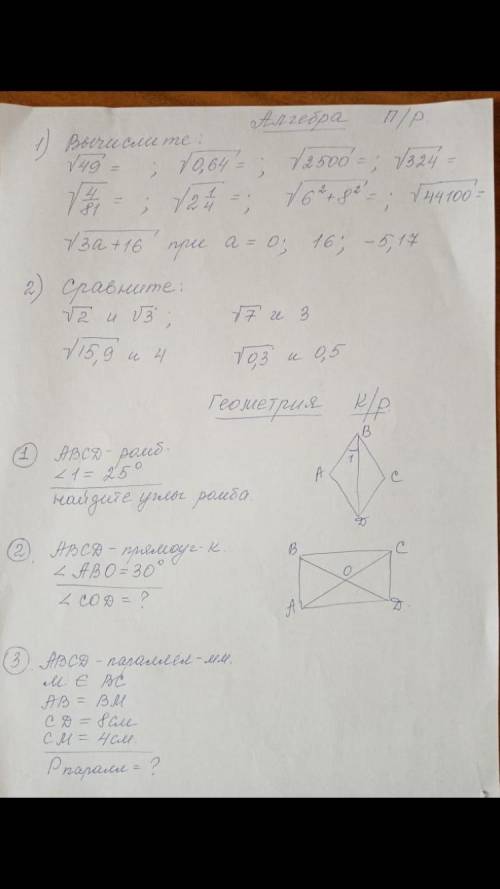 Алгебра П/р
1) Вычислите:
√49 = ; √0,64 = ; √2500 = ; √324 =
√4/81 = ; √2 1/4 = ; √6²+8² = ; √44100 =
√3a+16 при a = 0; 16; -5,17
2) Сравните:
√2 и √3 ; √7 и 3
√15,9 и 4 √0,3 и 0,5
Геометрия К/р
1 ABCD - ромб.
∠1 = 25°
найдите углы ромба
B
1
A
C
D
2 ABCD - прямоуг-к.
∠ABO = 30°
∠COD = ?
B
C
O
A
D
3 ABCD - параллел-мм.
M ∈ BC
AB = BM
CD = 8см
CM = 4см.
Pпаралл = ?